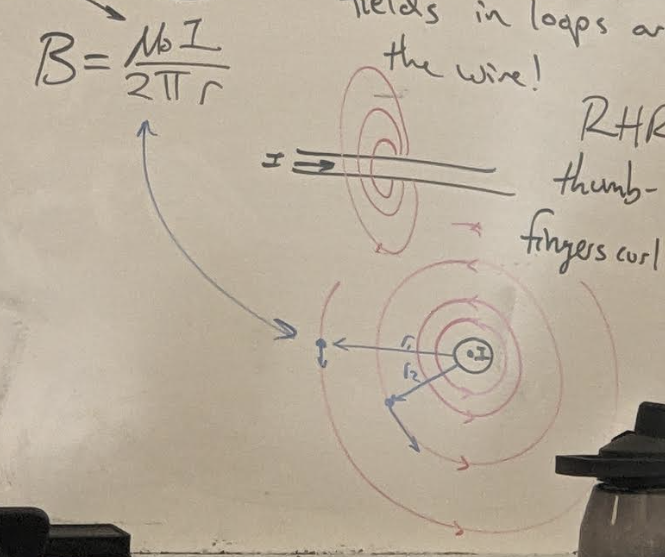 fields in loops
the wire!
B = μ₀I / 2πr
I
RHR
thumb-
fingers curl
r₁
I
r₂